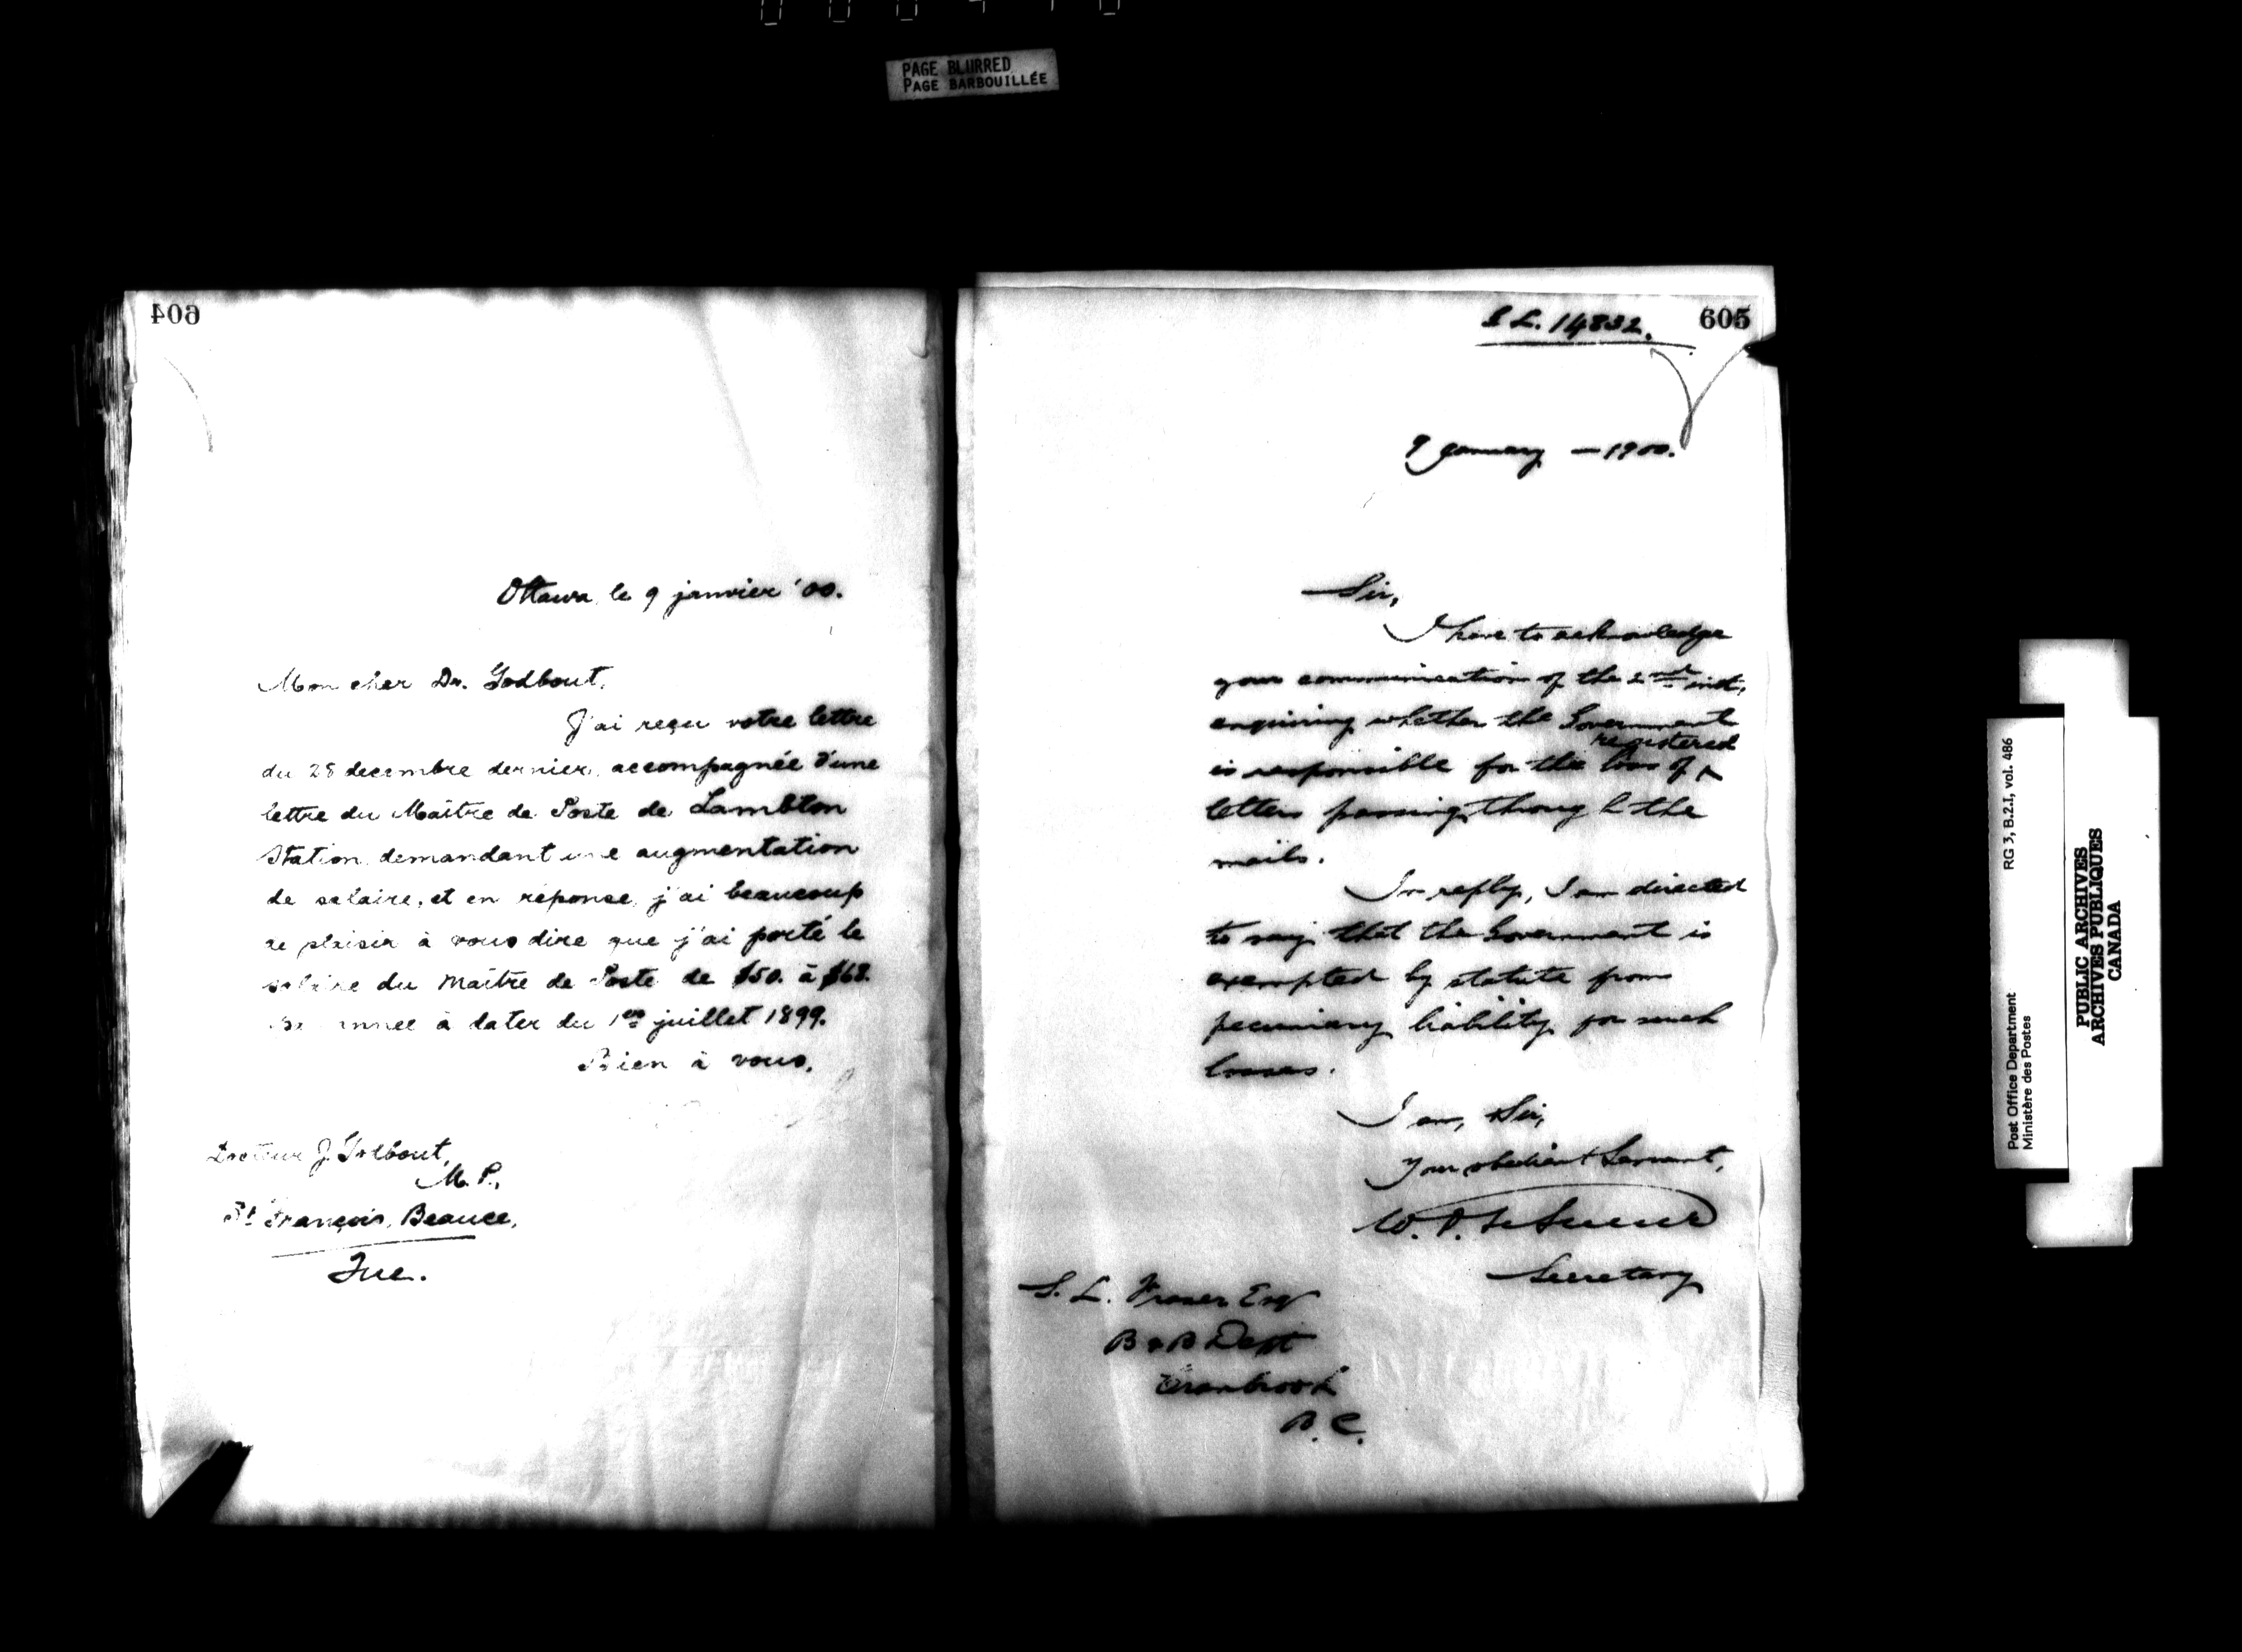 PAGE BLURRED
PAGE BARBOUILLÉE
604
Ottawa, le 9 janvier '00.
Mon cher Dr. Godbout,
J'ai reçu votre lettre
du 28 decembre dernier, accompagnée d'une
lettre du Maître de Poste de Lambton
Station, demandant une augmentation
de salaire, et en réponse, j'ai beaucoup
de plaisir à vous dire que j'ai porté le
salaire du Maître de Poste de $50. à $68.
année à dater du 1er juillet 1899.
Bien à vous,
Docteur J. Godbout,
M. P.,
St François, Beauce,
Que.
605
L. 14832.
9 January — 1900.
Sir,
I have to acknowledge
your communication of the 2nd inst,
enquiring whether the Government
is responsible for the loss of registered
letters passing through the
mails.
In reply, I am directed
to say that the Government is
exempted by statute from
pecuniary liability for such
losses.
I am, Sir,
Your obedient Servant,
W. D. LeSueur
Secretary
S. L. Fraser Esq
B & B Dept
Cranbrook
B. C.
Post Office Department RG 3, B.2.I, vol. 486
Ministère des Postes
PUBLIC ARCHIVES
ARCHIVES PUBLIQUES
CANADA